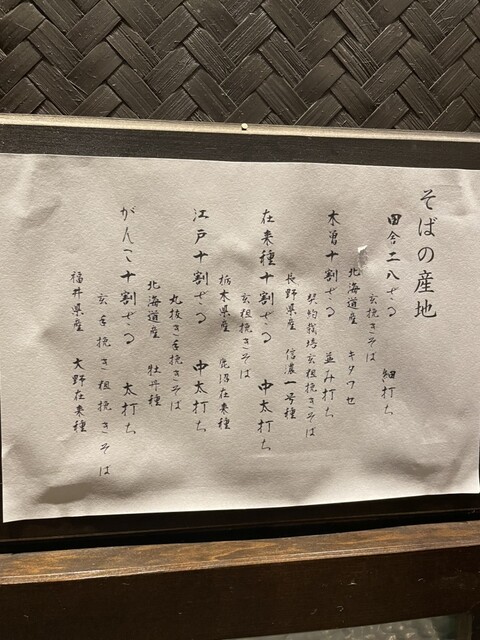 そばの産地
田舎二八ざる 細打ち
玄挽きそば
北海道産 キタワセ
木曽十割ざる 並み打ち
契約栽培玄粗挽きそば
長野県産 信濃一号種
在来種十割ざる 中太打ち
玄粗挽きそば
栃木県産 鹿沼在来種
江戸十割ざる 中太打ち
丸抜き手挽きそば
北海道産 牡丹種
がんこ十割ざる 太打ち
玄手挽き粗挽きそば
福井県産 大野在来種